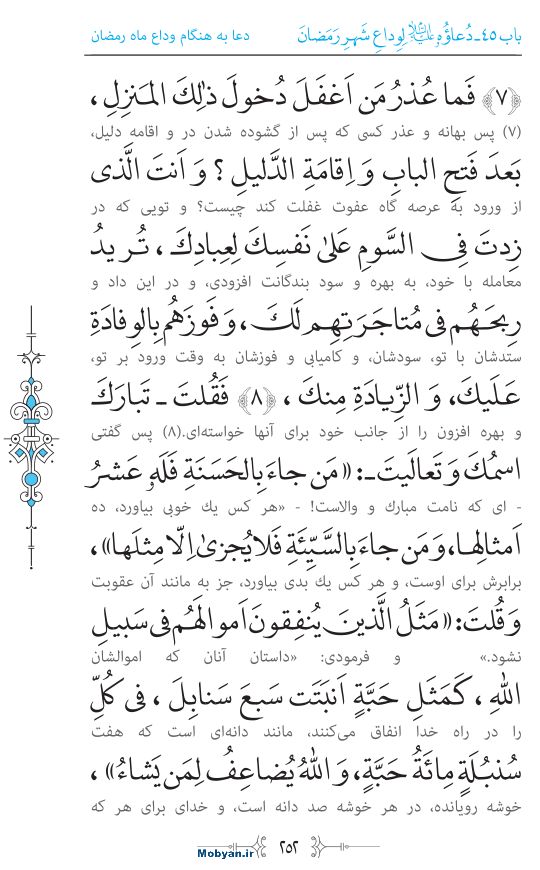 باب ٤٥ـ دُعاؤُهُ علیه‌السلام لِوِداعِ شَهرِ رَمَضانَ
دعا به هنگام وداع ماه رمضان
﴿٧﴾ فَما عُذرُ مَن اَغفَلَ دُخولَ ذٰلِكَ المَنزِلِ ،
(٧) پس بهانه و عذر کسی که پس از گشوده شدن در و اقامه دلیل،
بَعدَ فَتحِ البابِ وَ اِقامَةِ الدَّليلِ ؟ وَ اَنتَ الَّذی
از ورود به عرصه گاه عفوت غفلت کند چیست؟ و تویی که در
زِدتَ فِی السَّومِ عَلىٰ نَفسِكَ لِعِبادِكَ ، تُريدُ
معامله با خود، به بهره و سود بندگانت افزودی، و در این داد و
رِبحَهُم فی مُتاجَرَتِهِم لَكَ ، وَ فَوزَهُم بِالوِفادَةِ
ستدشان با تو، سودشان، و کامیابی و فوزشان به وقت ورود بر تو،
عَلَيكَ، وَ الزِّيادَةِ مِنكَ ، ﴿٨﴾ فَقُلتَ ـ تَبارَكَ
و بهره افزون را از جانب خود برای آنها خواسته‌ای.(٨) پس گفتی
اسمُكَ وَ تَعالَيتَ ـ: «مَن جاءَ بِالحَسَنَةِ فَلَهٗ عَشرُ
- ای که نامت مبارك و والاست! - «هر کس یك خوبی بیاورد، ده
اَمثالِها، وَ مَن جاءَ بِالسَّيِّئَةِ فَلا يُجزىٰ اِلّا مِثلَها» ،
برابرش برای اوست، و هر کس یك بدی بیاورد، جز به مانند آن عقوبت
وَ قُلتَ: «مَثَلُ الَّذينَ يُنفِقونَ اَموالَهُم فی سَبيلِ
نشود.» و فرمودی: «داستان آنان که اموالشان
اللهِ ، كَمَثَلِ حَبَّةٍ اَنبَتَت سَبعَ سَنابِلَ ، فی كُلِّ
را در راه خدا انفاق می‌کنند، مانند دانه‌ای است که هفت
سُنبُلَةٍ مِائَةُ حَبَّةٍ، وَ اللهُ يُضاعِفُ لِمَن يَشاءُ» ،
خوشه رویانده، در هر خوشه صد دانه است، و خدای برای هر که
٢٥٢
Mobyan.ir